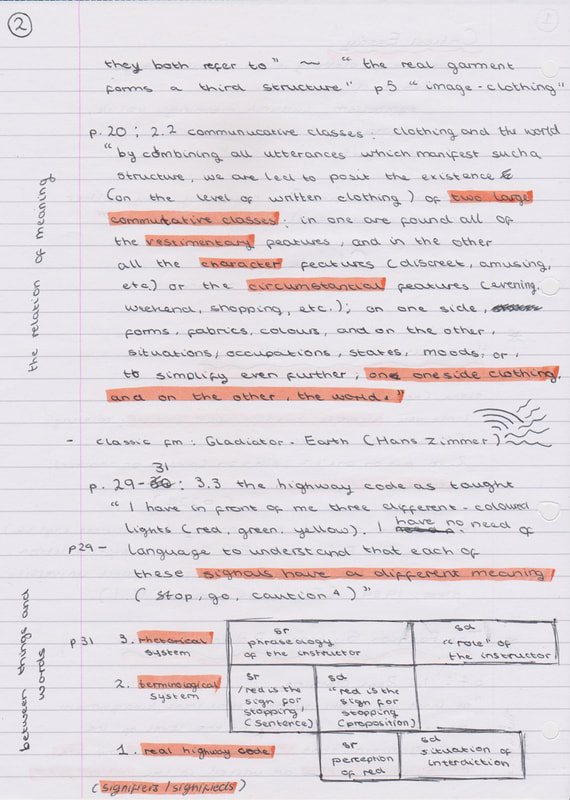 2
they both refer to" ~ "the real garment
forms a third structure" p5 "image-clothing"
p.20 : 2.2 communucative classes : clothing and the world
"by combining all utterances which manifest such a
structure, we are led to posit the existence
(on the level of written clothing) of two large
commutative classes : in one are found all of
the vestimentary features, and in the other
all the character features (discreet, amusing,
etc.) or the circumstantial features (evening,
weekend, shopping, etc.); on one side,
forms, fabrics, colours, and on the other,
situations, occupations, states, moods, or,
to simplify even further, on one side clothing,
and on the other, the world."
the relation of meaning
- classic fm : Gladiator - Earth (Hans Zimmer)
p. 29-31 : 3.3 the highway code as taught
"I have in front of me three different-coloured
lights (red, green, yellow). I have no need of
p29 - language to understand that each of
these signals have a different meaning
(stop, go, caution 4)"
between things and
words
p31 3. rhetorical
system
sr
phraseology
of the instructor
sd
"role" of
the instructor
2. terminological
system
sr
/red is the
sign for
stopping/
(sentence)
sd
"red is the
sign for
stopping
(proposition)
1. real highway code
sr
perception
of red
sd
situation of
interdiction
(signifiers/signifieds)